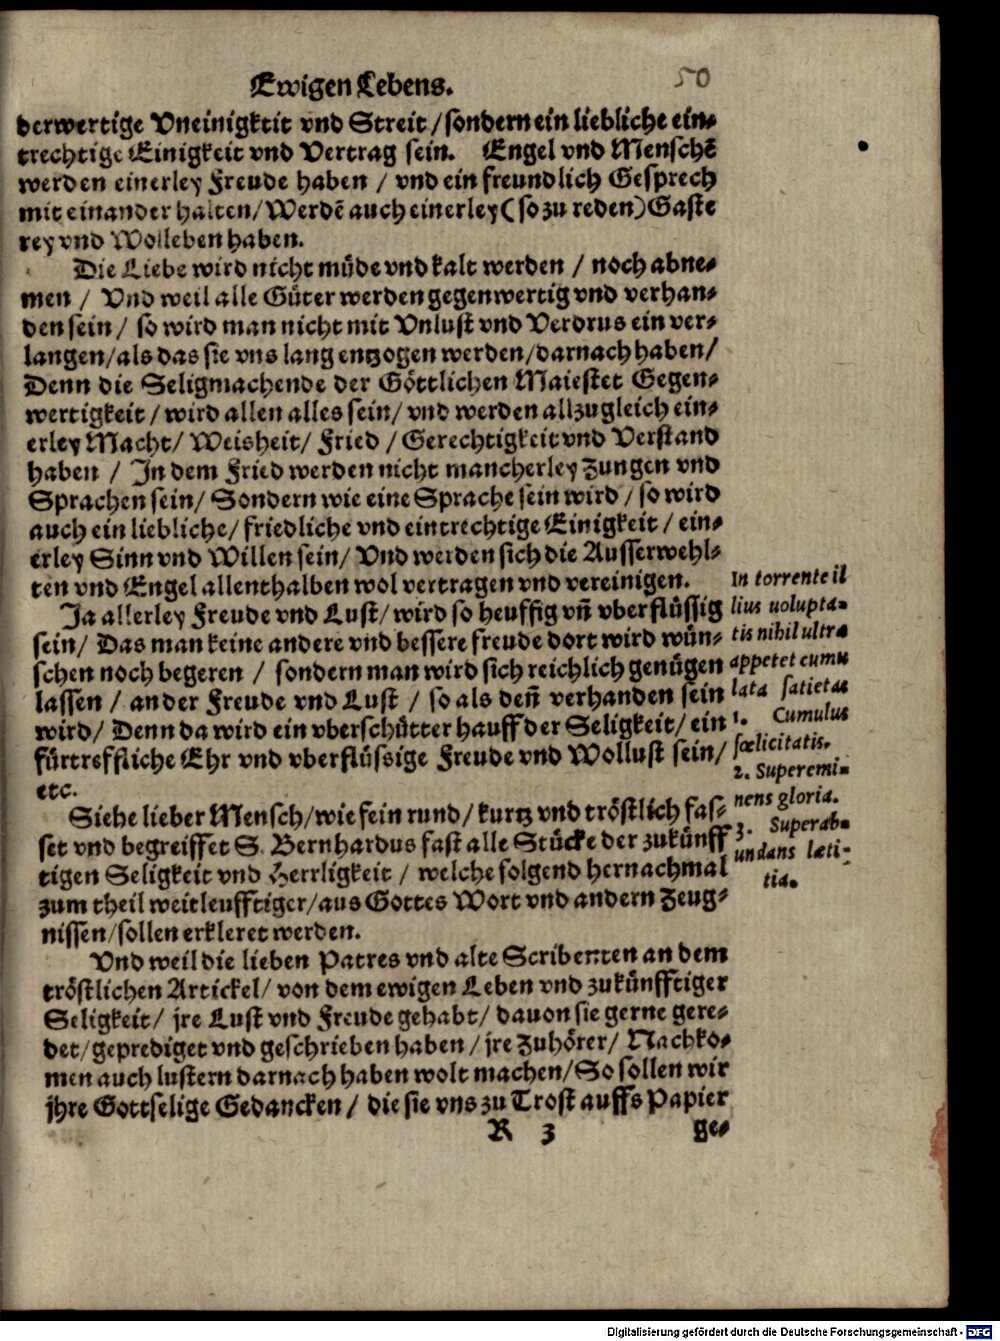 Ewigen Lebens.
50
derwertige Vneinigktit vnd Streit / sondern ein liebliche ein⸗
trechtige Einigkeit vnd Vertrag sein. Engel vnd Menschẽ
werden einerley Freude haben / vnd ein freundlich Gesprech
mit einander halten/ Werdẽ auch einerley ( so zu reden) Gaste
rey vnd Wolleben haben.
Die Liebe wird nicht müde vnd kalt werden / noch abne⸗
men / Vnd weil alle Güter werden gegenwertig vnd verhan⸗
den sein / so wird man nicht mit Vnlust vnd Verdrus ein ver⸗
langen/ als das sie vns lang entzogen werden/ darnach haben/
Denn die Seligmachende der Göttlichen Maiestet Gegen⸗
wertigkeit / wird allen alles sein/ vnd werden allzugleich ein⸗
erley Macht/ Weisheit/ Fried / Gerechtigkeit vnd Verstand
haben / In dem Fried werden nicht mancherley Zungen vnd
Sprachen sein/ Sondern wie eine Sprache sein wird / so wird
auch ein liebliche/ friedliche vnd eintrechtige Einigkeit / ein⸗
erley Sinn vnd Willen sein/ Vnd werden sich die Ausserwehl⸗
ten vnd Engel allenthalben wol vertragen vnd vereinigen.
Ja allerley Freude vnd Lust/ wird so heuffig vñ vberflüssig
sein/ Das man keine andere vnd bessere freude dort wird wün⸗
schen noch begeren / sondern man wird sich reichlich genügen
lassen / an der Freude vnd Lust / so als deñ verhanden sein
wird/ Denn da wird ein vberschütter hauff der Seligkeit/ ein
fürtreffliche Ehr vnd vberflüssige Freude vnd Wollust sein/
etc.
Siehe lieber Mensch/ wie fein rund/ kurtz vnd tröstlich fas⸗
set vnd begreiffet S. Bernhardus fast alle Stücke der zukünff
tigen Seligkeit vnd Herrligkeit / welche folgend hernachmal
zum theil weitleufftiger/ aus Gottes Wort vnd andern Zeug⸗
nissen/ sollen erkleret werden.
Vnd weil die lieben Patres vnd alte Scribenten an dem
tröstlichen Artickel/ von dem ewigen Leben vnd zukünfftiger
Seligkeit/ jre Lust vnd Freude gehabt/ dauon sie gerne gere⸗
det/ geprediget vnd geschrieben haben / jre Zuhörer/ Nachko⸗
men auch lustern darnach haben wolt machen/ So sollen wir
jhre Gottselige Gedancken / die sie vns zu Trost auffs Papier
R 3 ge⸗
In torrente il
lius uolupta⸗
tis nihil ultra
appetet cumu
lata satietas
1. Cumulus
fœlicitatis.
2. Superemi⸗
nens gloria.
3. Superab⸗
undans læti⸗
tia.
Digitalisierung gefördert durch die Deutsche Forschungsgemeinschaft - DFG